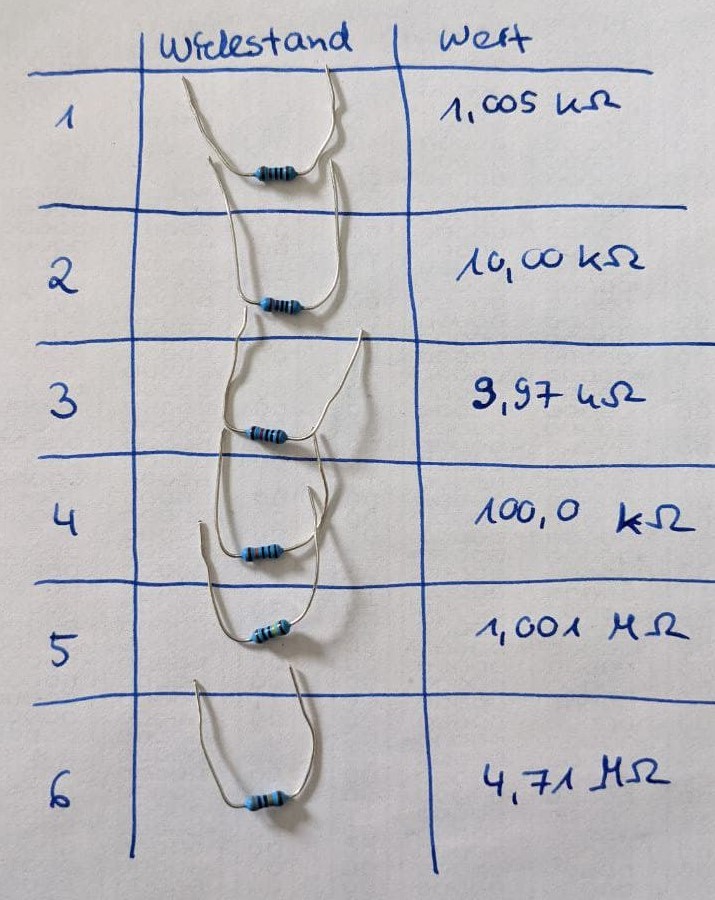 Widestand Wert
1 1,005 kΩ
2 10,00 kΩ
3 9,97 kΩ
4 100,0 kΩ
5 1,001 MΩ
6 4,71 MΩ